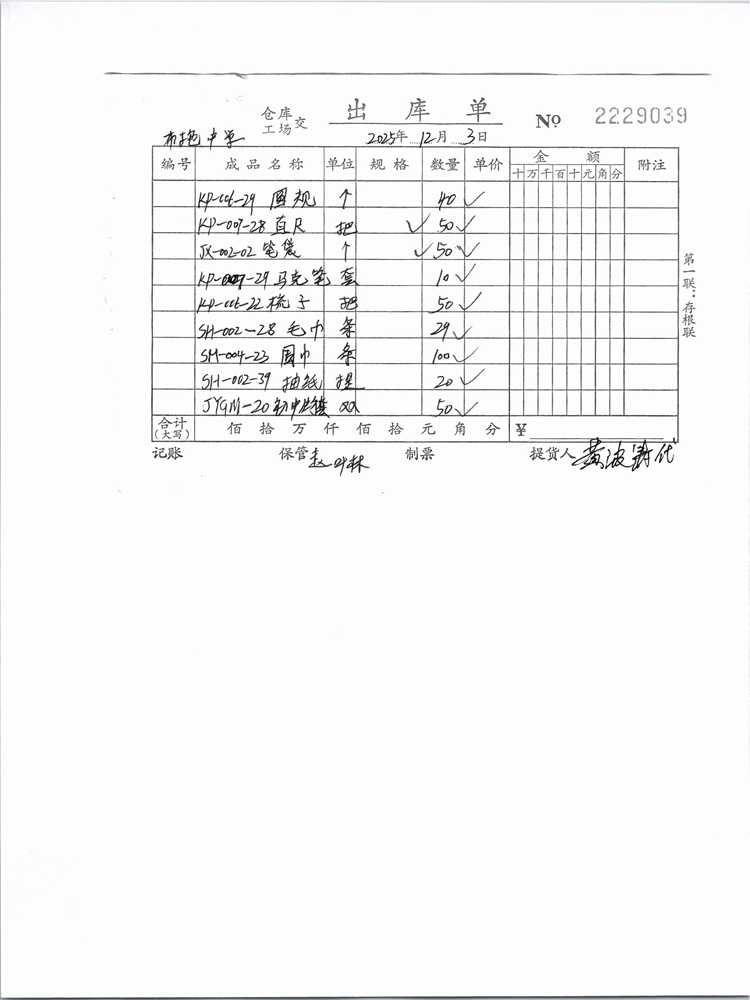 仓库
工场交
出库单
No 2229039
布拖中学
2025年12月3日
编号 成品名称 单位 规格 数量 单价 金额 附注
十万千百十元角分
KP-006-29 圆规 个 40 ✓
KP-007-28 直尺 把 ✓ 50 ✓
JX-002-02 笔袋 个 ✓ 50 ✓
马克笔 套 10 ✓
梳子 把 50 ✓
SH-002-28 毛巾 条 29 ✓
SM-004-23 围巾 条 100 ✓
SH-002-39 抽纸 提 20 ✓
JYGM-20 初中 双 50 ✓
合计(大写) 佰拾万仟佰拾元角分 ¥
记账 保管 赵叶林 制票 提货人 黄波 代
第一联:存根联